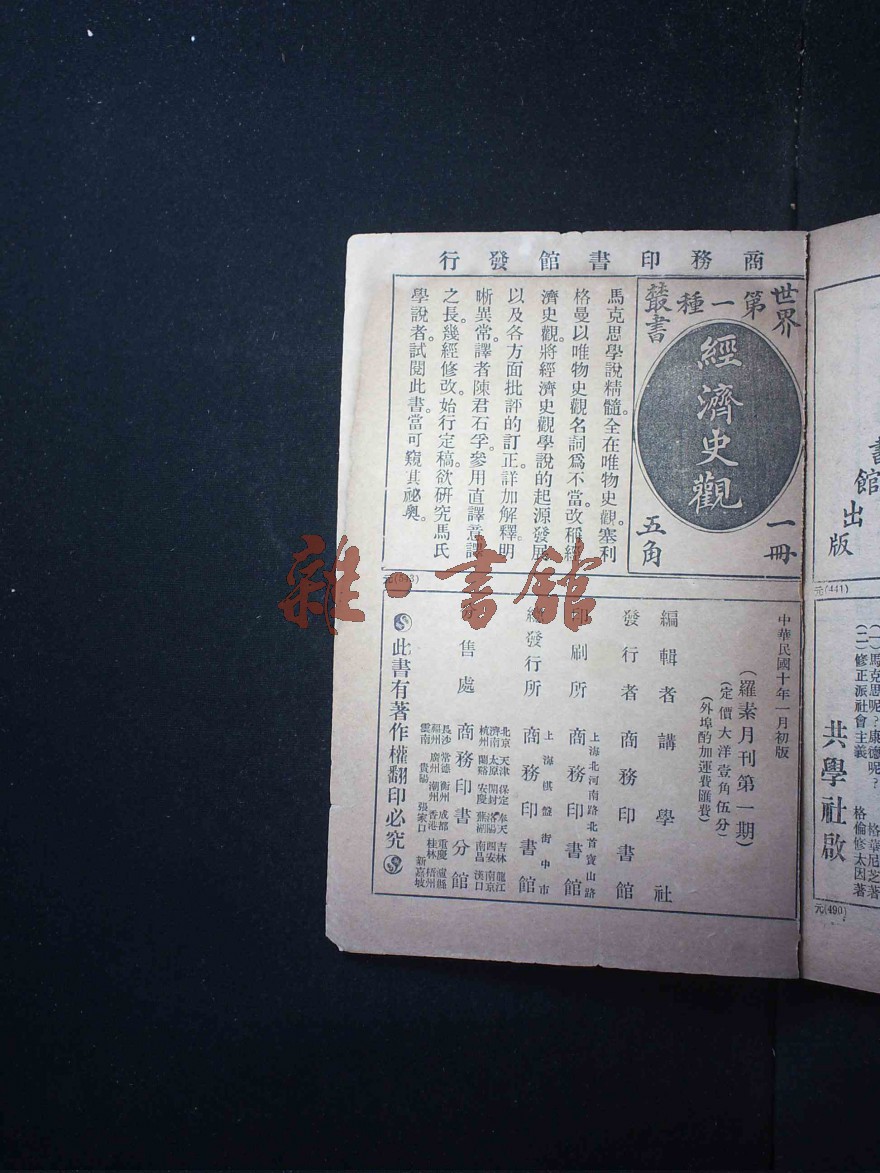 商務印書館發行
世界叢書
第一種
經濟史觀
一冊
五角
馬克思學說精髓。全在唯物史觀。塞利
格曼以唯物史觀名詞爲不當。改稱經
濟史觀。將經濟史觀學說的起源發展
以及各方面批評的訂正。詳加解釋。明
晰異常。譯者陳君石孚。參用直譯意譯
之長。幾經修改。始行定稿。欲研究馬氏
學說者。試閱此書。當可窺其祕奧。
中華民國十年一月初版
(羅素月刊第一期)
(定價大洋壹角伍分)
(外埠酌加運費匯費)
編輯者 講學社
發行者 商務印書館
上海北河南路北首寶山路
印刷所 商務印書館
上海棋盤街中市
總發行所 商務印書館
售處 商務印書分館
北京 天津 保定 奉天 吉林 龍江
濟南 太原 開封 洛陽 西安 南京
杭州 蘭谿 安慶 蕪湖 南昌 漢口
長沙 常德 衡州 成都 重慶 瀘縣
福州 廣州 潮州 香港 桂林 梧州
雲南 貴陽 張家口 新嘉坡
此書有著作權翻印必究
書館出版
元(441)
(一)馬克思呢?康德呢? 格華尼芝著
(二)修正派社會主義 格倫修太因著
共學社啟
元(490)
雜·書館